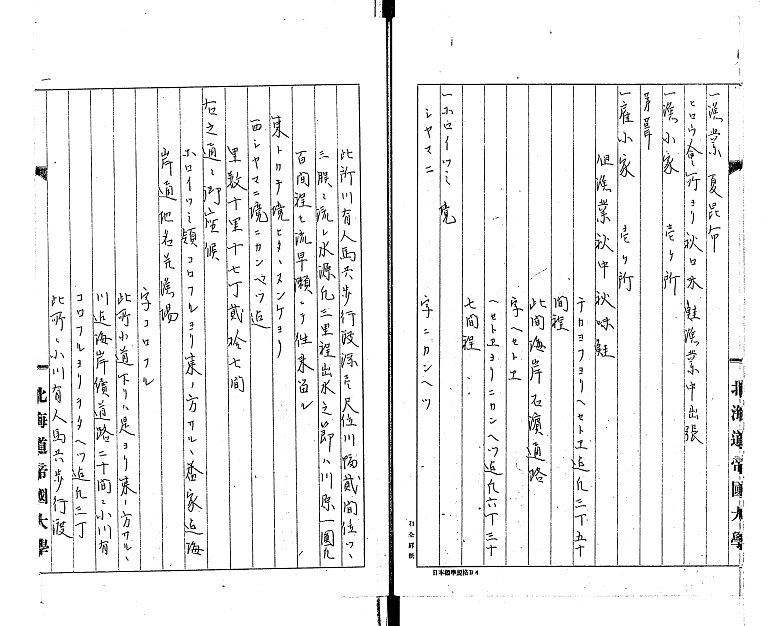 一漁業 夏昆布
ヒロウ会所ヨリ秋口ホ 鮭漁業中出張
一漁小家 壱ヶ所
茅葺
一雇小家 壱ヶ所
但漁業秋中秋味鮭
テカヨフヨリヘセトヱ迄凡二丁五十
間程
此間海岸石濱通路
字ヘセトヱ
ヘセトヱヨリニカンヘツ迄凡六丁三十
七間程
一ホロイツミ境 字ニカンヘツ
シヤマニ
北海道帝國大學
日本標準規格B4
此所川有人馬共歩行渡深サ尺位川幅貳間位ツヽ
三股ニ流レ水源凡三里程出水之節ハ川原一圓凡
百間程モ流早瀬ニテ往来留ル
東トカチ境ヒタヽヌンケヨリ
西シヤマニ境ニカンヘツ迄
里数十里十七丁貳拾七間
右之通ニ御座候
ホロイツミ領コロフルヨリ東ノ方サルヽ番家迄海
岸通地名並漁場
字コロフル
此所小道下リハ是ヨリ東ノ方サルヽ
川迄海岸續道路二十間ニ小川有
コロフルヨリヲタヘツ迄凡三丁
此所ニ小川有人馬共歩行渡
北海道帝國大學